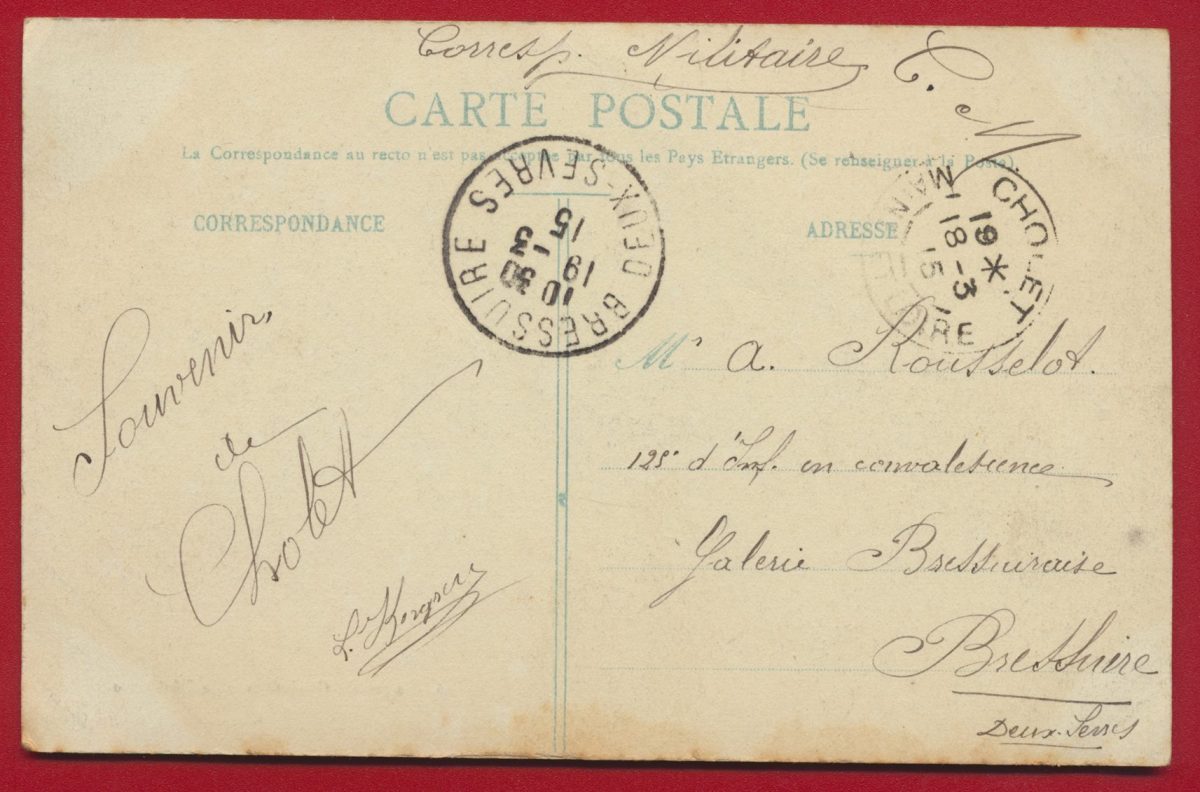 Corresp. Militaire C. M
CARTE POSTALE
La Correspondance au recto n'est pas acceptée par tous les Pays Etrangers. (Se renseigner à la Poste).
CORRESPONDANCE
ADRESSE
BRESSUIRE DEUX-SEVRES
10 30
19 - 3
15
CHOLET
19 *
18 - 3
15
Souvenir,
de
Cholet
Mr A. Rousselot.
125e d'Inf. en convalescence
Galerie Bressuiraise
Bressuire
Deux-Sevres